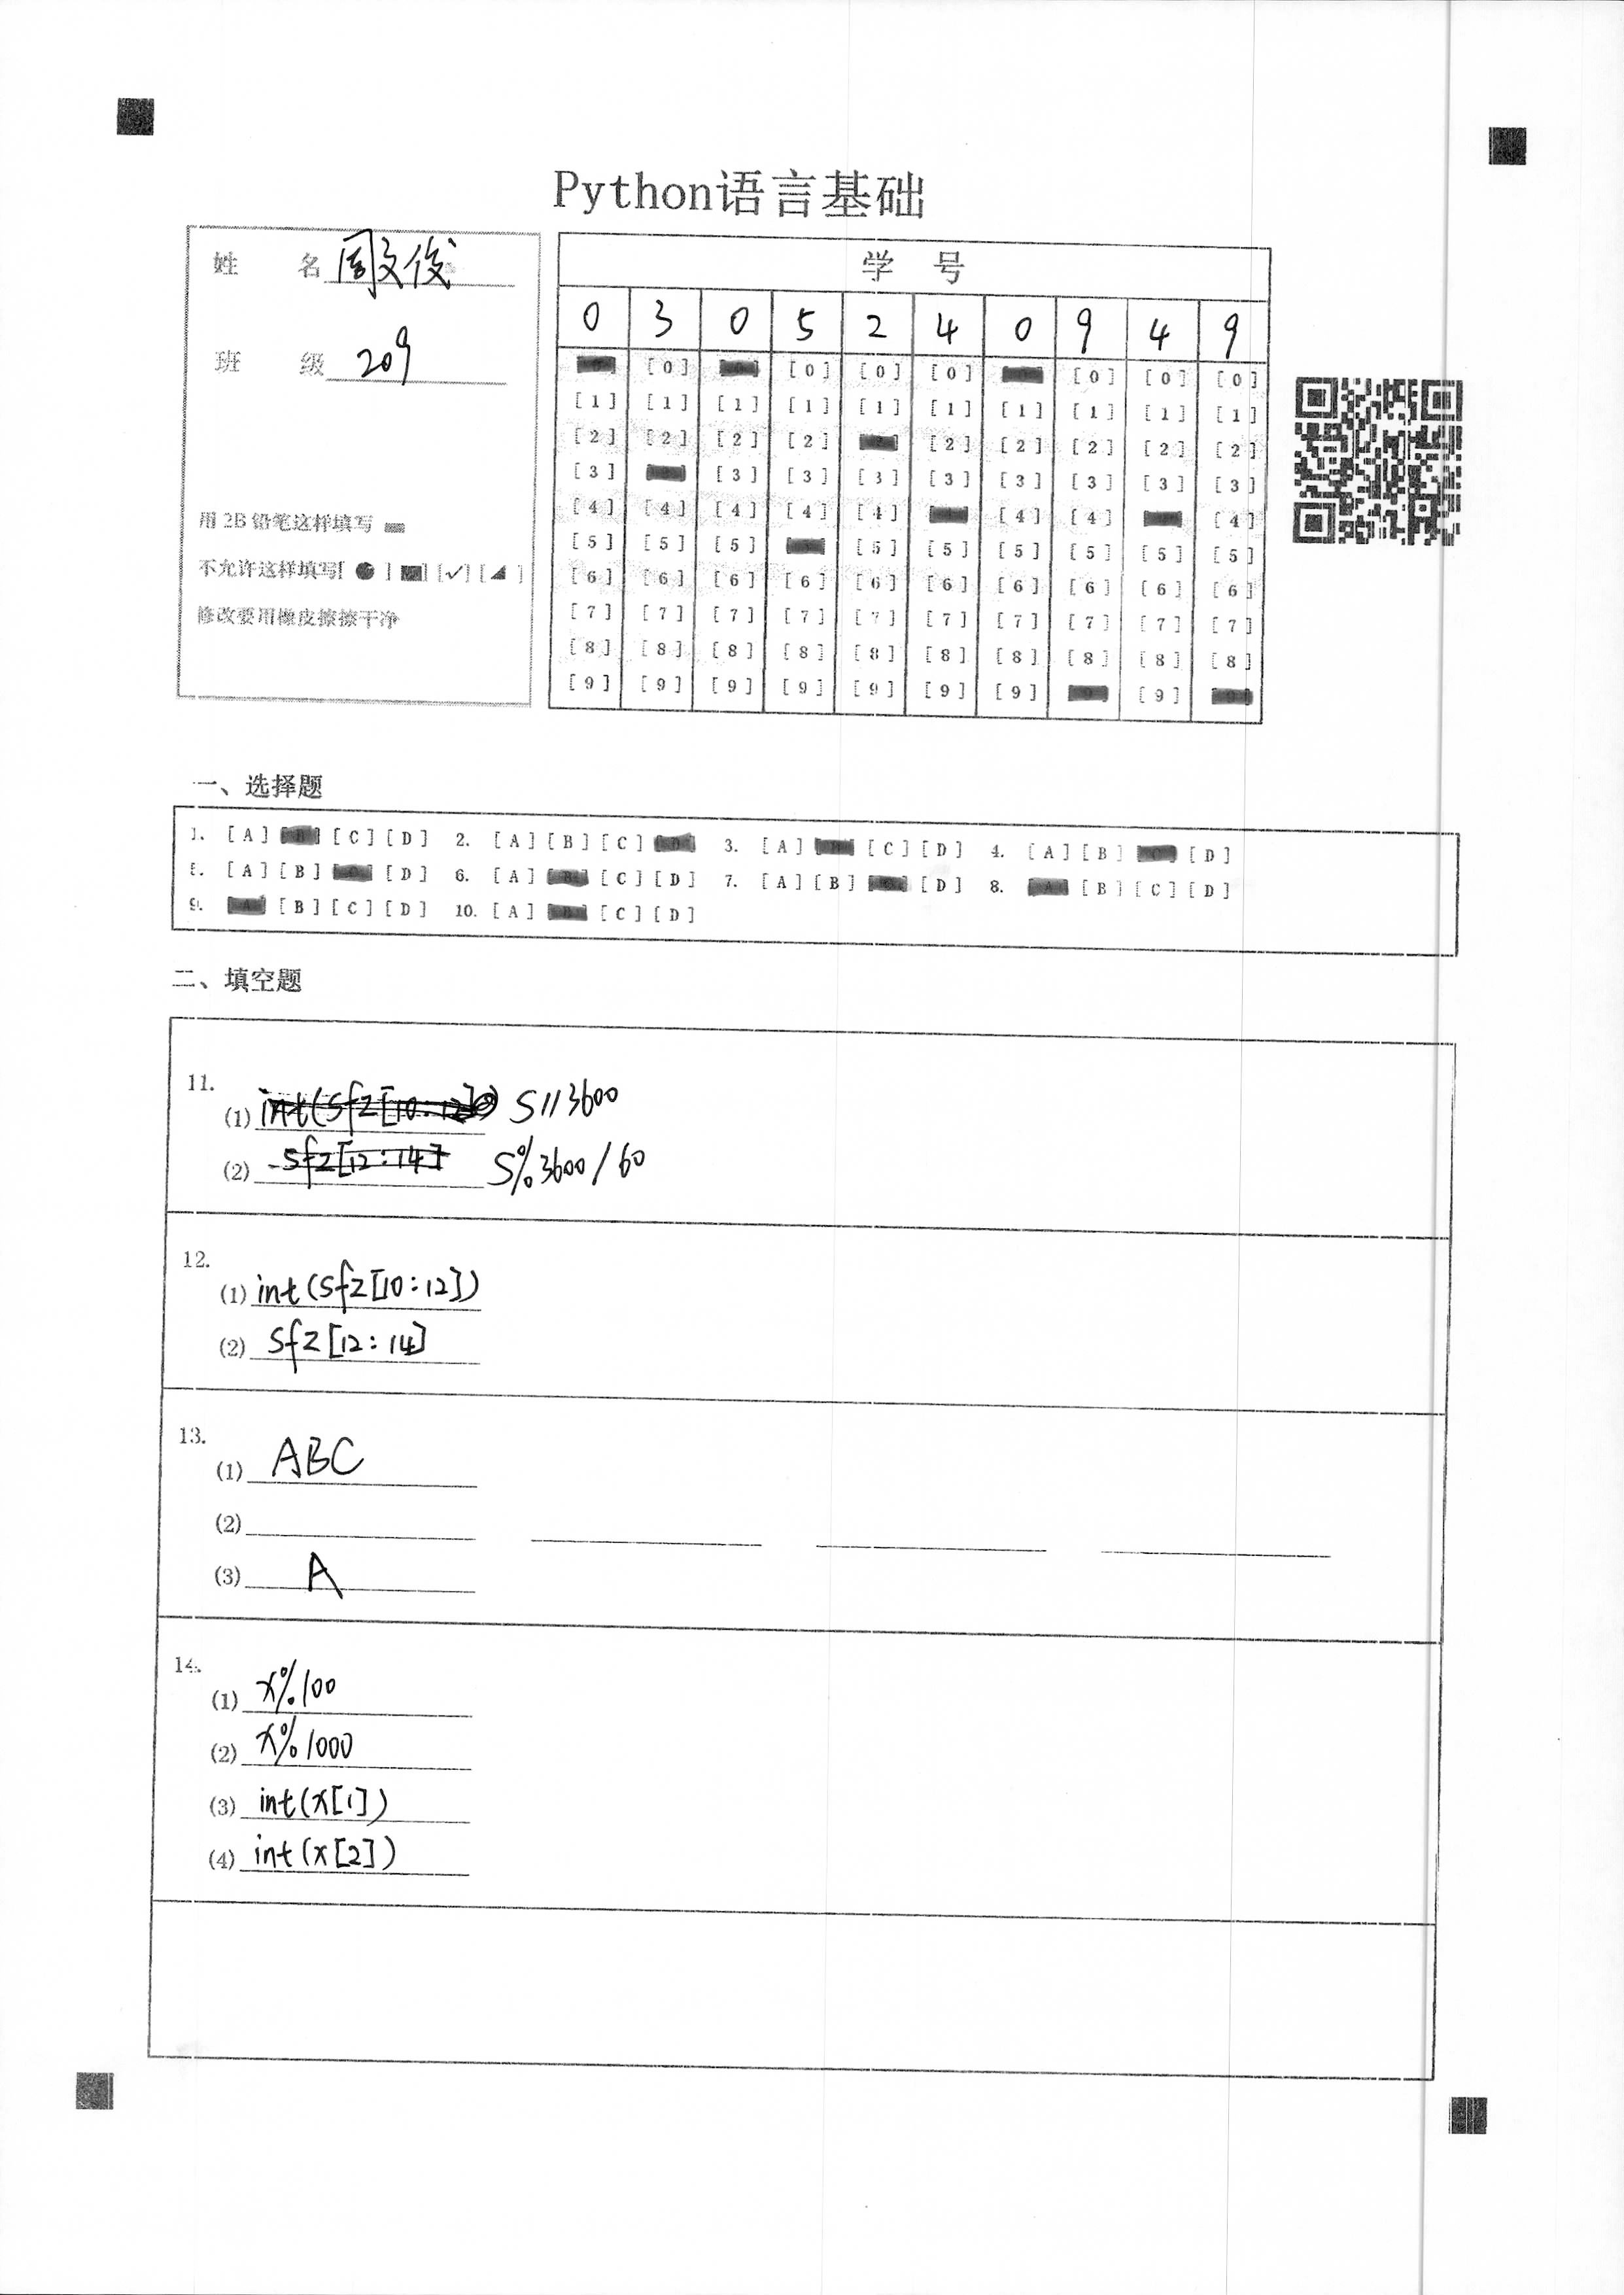 Python语言基础
姓 名 周文俊
班 级 209
用 2B 铅笔这样填写
不允许这样填写[ ● ] [■] [✓] [◢ ]
修改要用橡皮擦擦干净
学 号
0 3 0 5 2 4 0 9 4 9
[0] [0] [0] [0] [0] [0] [0]
[1] [1] [1] [1] [1] [1] [1] [1] [1] [1]
[2] [2] [2] [2] [2] [2] [2] [2] [2]
[3] [3] [3] [3] [3] [3] [3] [3] [3]
[4] [4] [4] [4] [4] [4] [4] [4]
[5] [5] [5] [5] [5] [5] [5] [5] [5]
[6] [6] [6] [6] [6] [6] [6] [6] [6] [6]
[7] [7] [7] [7] [7] [7] [7] [7] [7] [7]
[8] [8] [8] [8] [8] [8] [8] [8] [8] [8]
[9] [9] [9] [9] [9] [9] [9] [9]
一、选择题
1. [A] [C] [D] 2. [A] [B] [C] 3. [A] [C] [D] 4. [A] [B] [D]
5. [A] [B] [D] 6. [A] [C] [D] 7. [A] [B] [D] 8. [B] [C] [D]
9. [B] [C] [D] 10. [A] [C] [D]
二、填空题
11.
(1) int(sfz[10:12]) S//3600
(2) sfz[12:14] S%3600/60
12.
(1) int(sfz[10:12])
(2) sfz[12:14]
13.
(1) ABC
(2)
(3) A
14.
(1) x%100
(2) x%1000
(3) int(x[1])
(4) int(x[2])